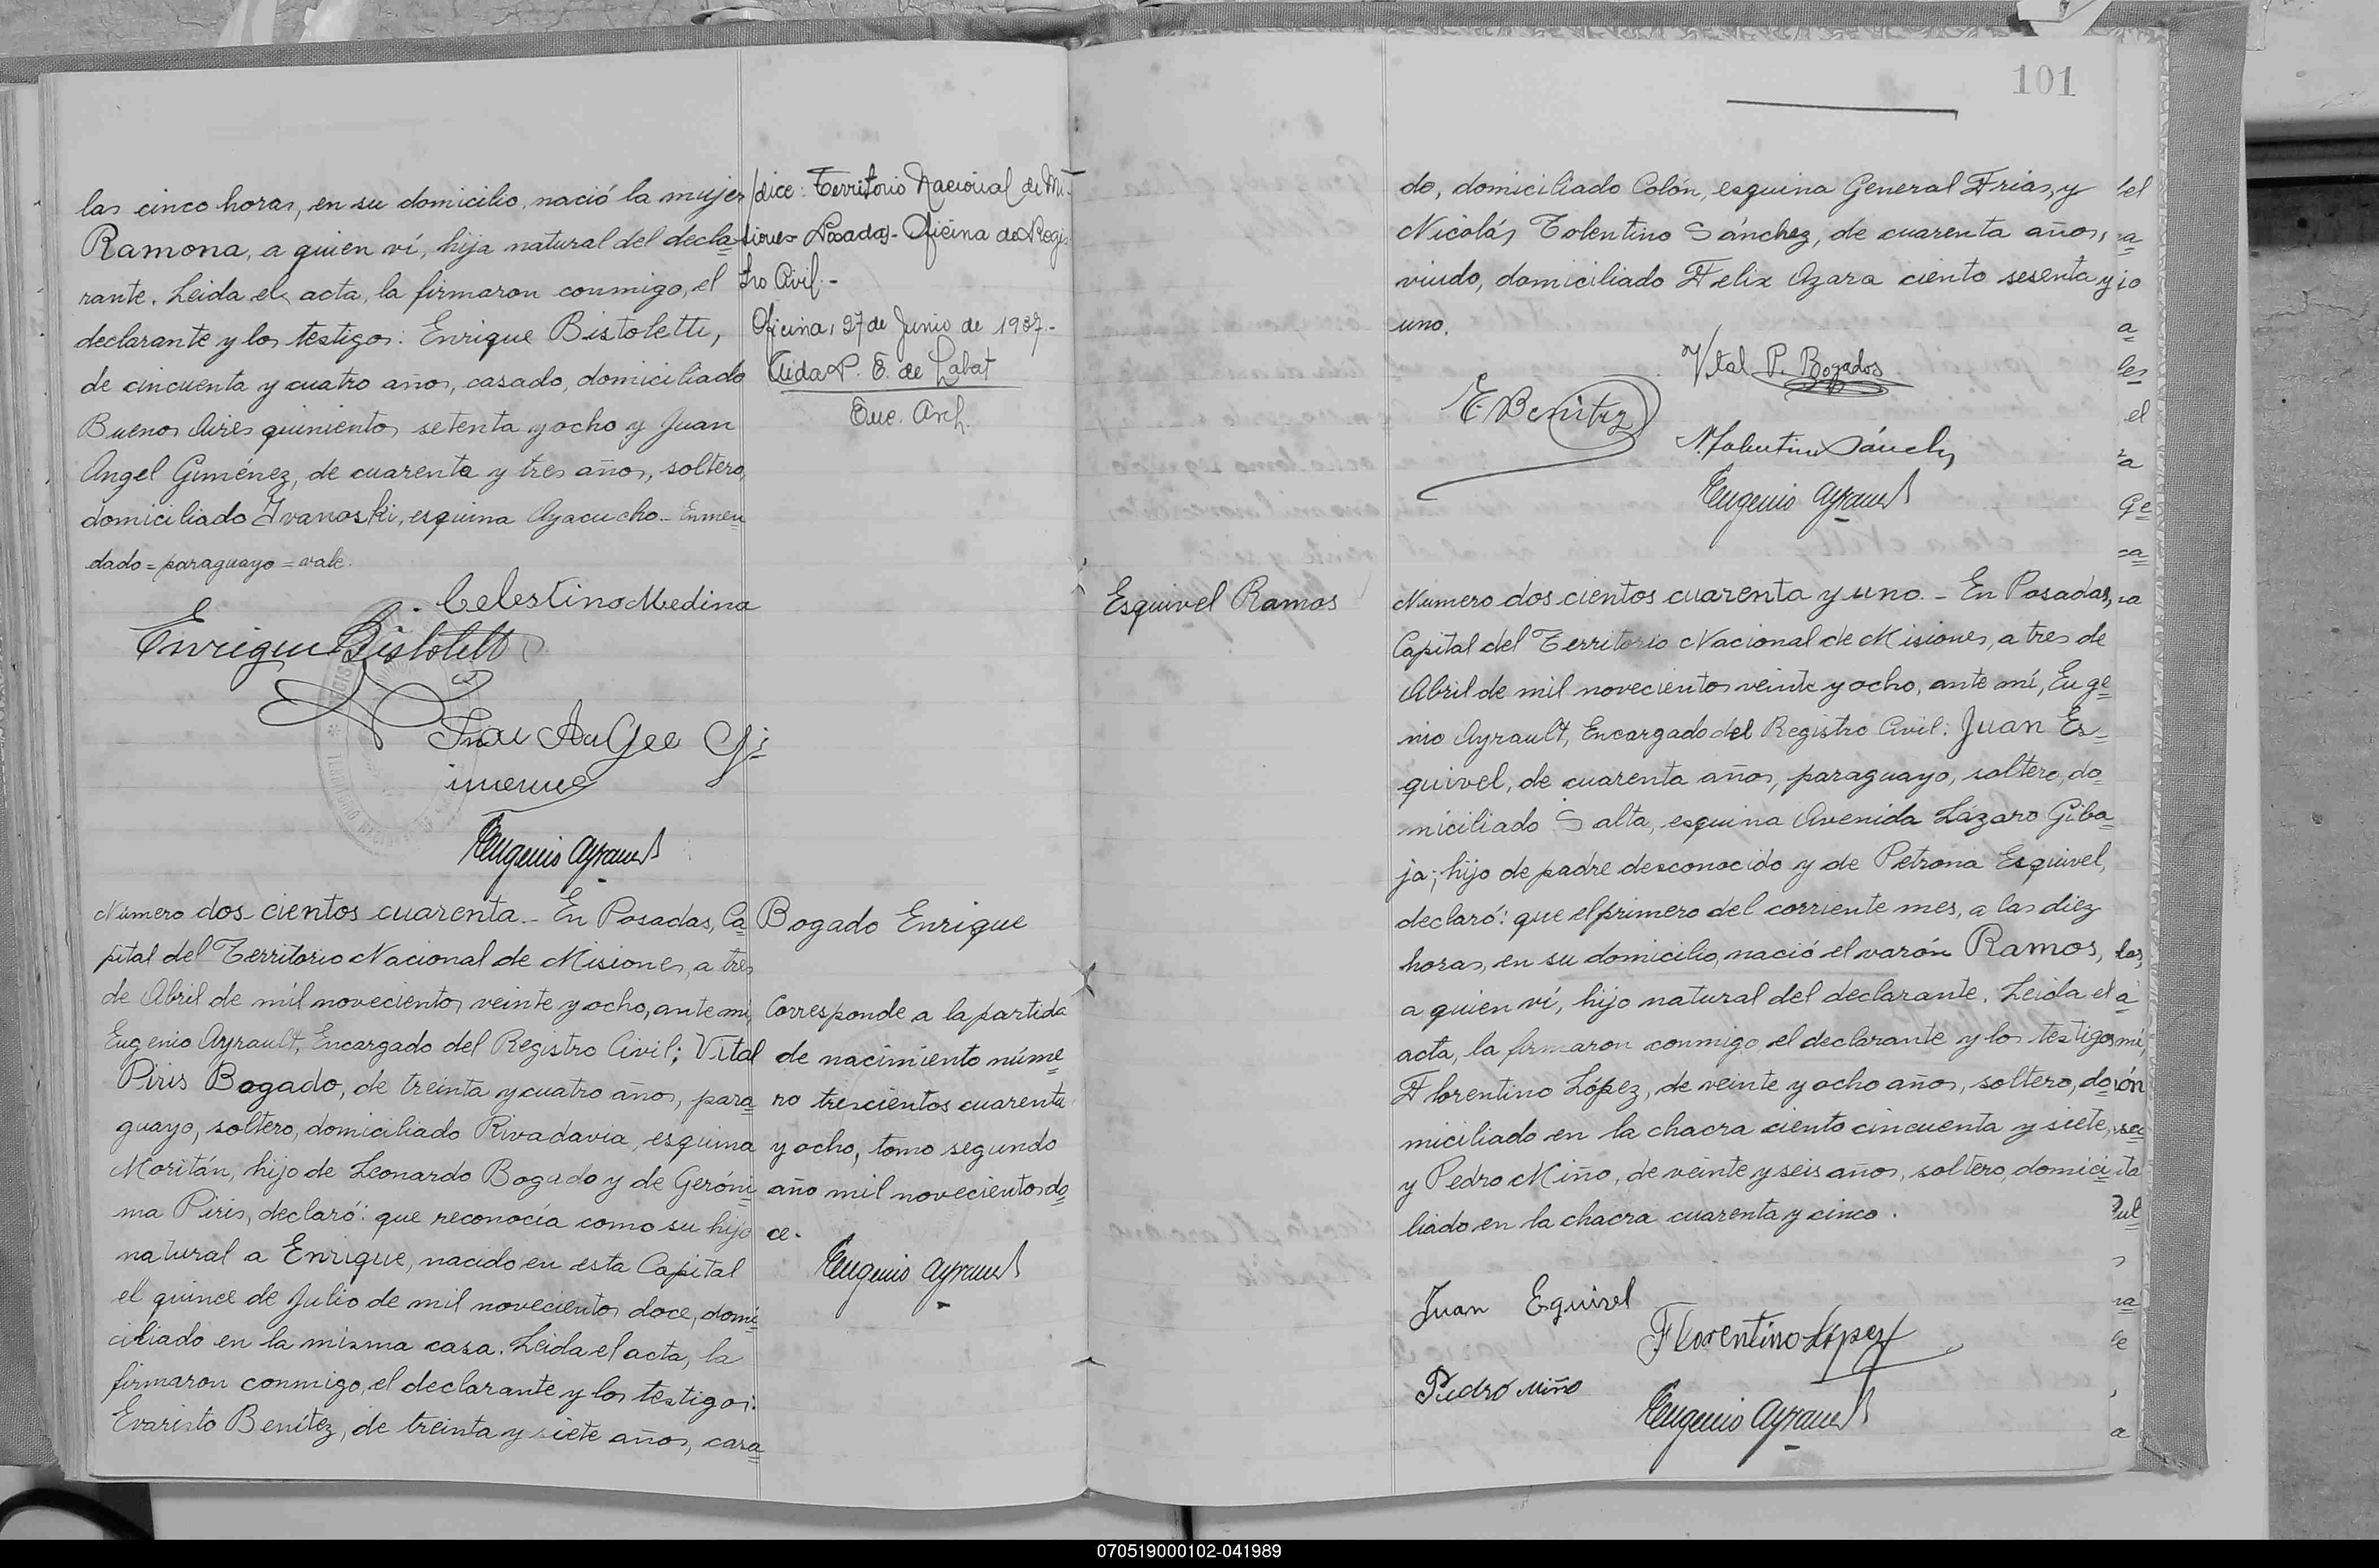 las cinco horas, en su domicilio, nació la mujer
Ramona, a quien ví, hija natural del decla=
rante. Leida el acta, la firmaron conmigo, el
declarante y los testigos: Enrique Bistoletti,
de cincuenta y cuatro años, casado, domiciliado
Buenos Aires quinientos setenta y ocho y Juan
Angel Giménez, de cuarenta y tres años, soltero,
domiciliado Ivanoski, esquina Ayacucho_ Enmen
dado = paraguayo = vale.
Celestino Medina
Enrique Bistoletti
Eugenio Ayrault
/dice: Territorio Nacional de Mi-
siones Posadas- Oficina de Regis
tro Civil.-
Oficina, 27 de Junio de 1987.-
Aida P. E. de Labat
Enc. Arch.
Número dos cientos cuarenta._ En Posadas, Ca
pital del Territorio Nacional de Misiones, a tres
de Abril de mil novecientos veinte y ocho, ante mí,
Eugenio Ayrault, Encargado del Registro Civil; Vital
Piris Bogado, de treinta y cuatro años, para=
guayo, soltero, domiciliado Rivadavia, esquina
Moritán, hijo de Leonardo Bogado y de Geróni=
ma Piris, declaró: que reconocía como su hijo
natural a Enrique, nacido en esta Capital
el quince de Julio de mil novecientos doce, domi=
ciliado en la misma casa. Leida el acta, la
firmaron conmigo, el declarante y los testigos:
Evaristo Benítez, de treinta y siete años, casa=
Bogado Enrique
Corresponde a la partida
de nacimiento núme=
ro trescientos cuarenta
y ocho, tomo segundo
año mil novecientos do=
ce.
Eugenio Ayrault
101
do, domiciliado Colón, esquina General Frias, y
Nicolás Tolentino Sánchez, de cuarenta años,
viudo, domiciliado Felix Azara ciento sesenta y
uno.
Vital P. Bogados
E. Benítez
N. Tolentino Sánchez
Eugenio Ayrault
Esquivel Ramos
Numero dos cientos cuarenta y uno._ En Posadas,
Capital del Territorio Nacional de Misiones, a tres de
Abril de mil novecientos veinte y ocho, ante mí, Euge=
nio Ayrault, Encargado del Registro Civil: Juan Es=
quivel, de cuarenta años, paraguayo, soltero, do=
miciliado Salta, esquina Avenida Lázaro Giba=
ja; hijo de padre desconocido y de Petrona Esquivel,
declaró: que el primero del corriente mes, a las diez
horas, en su domicilio, nació el varón Ramos,
a quien ví, hijo natural del declarante. Leida el
acta, la firmaron conmigo el declarante y los testigos
Florentino López, de veinte y ocho años, soltero, do=
miciliado en la chacra ciento cincuenta y siete,
y Pedro Miño, de veinte y seis años, soltero, domici=
liado en la chacra cuarenta y cinco.
Juan Eguivel
Florentino López
Pedro Miño
Eugenio Ayrault
070519000102-041989